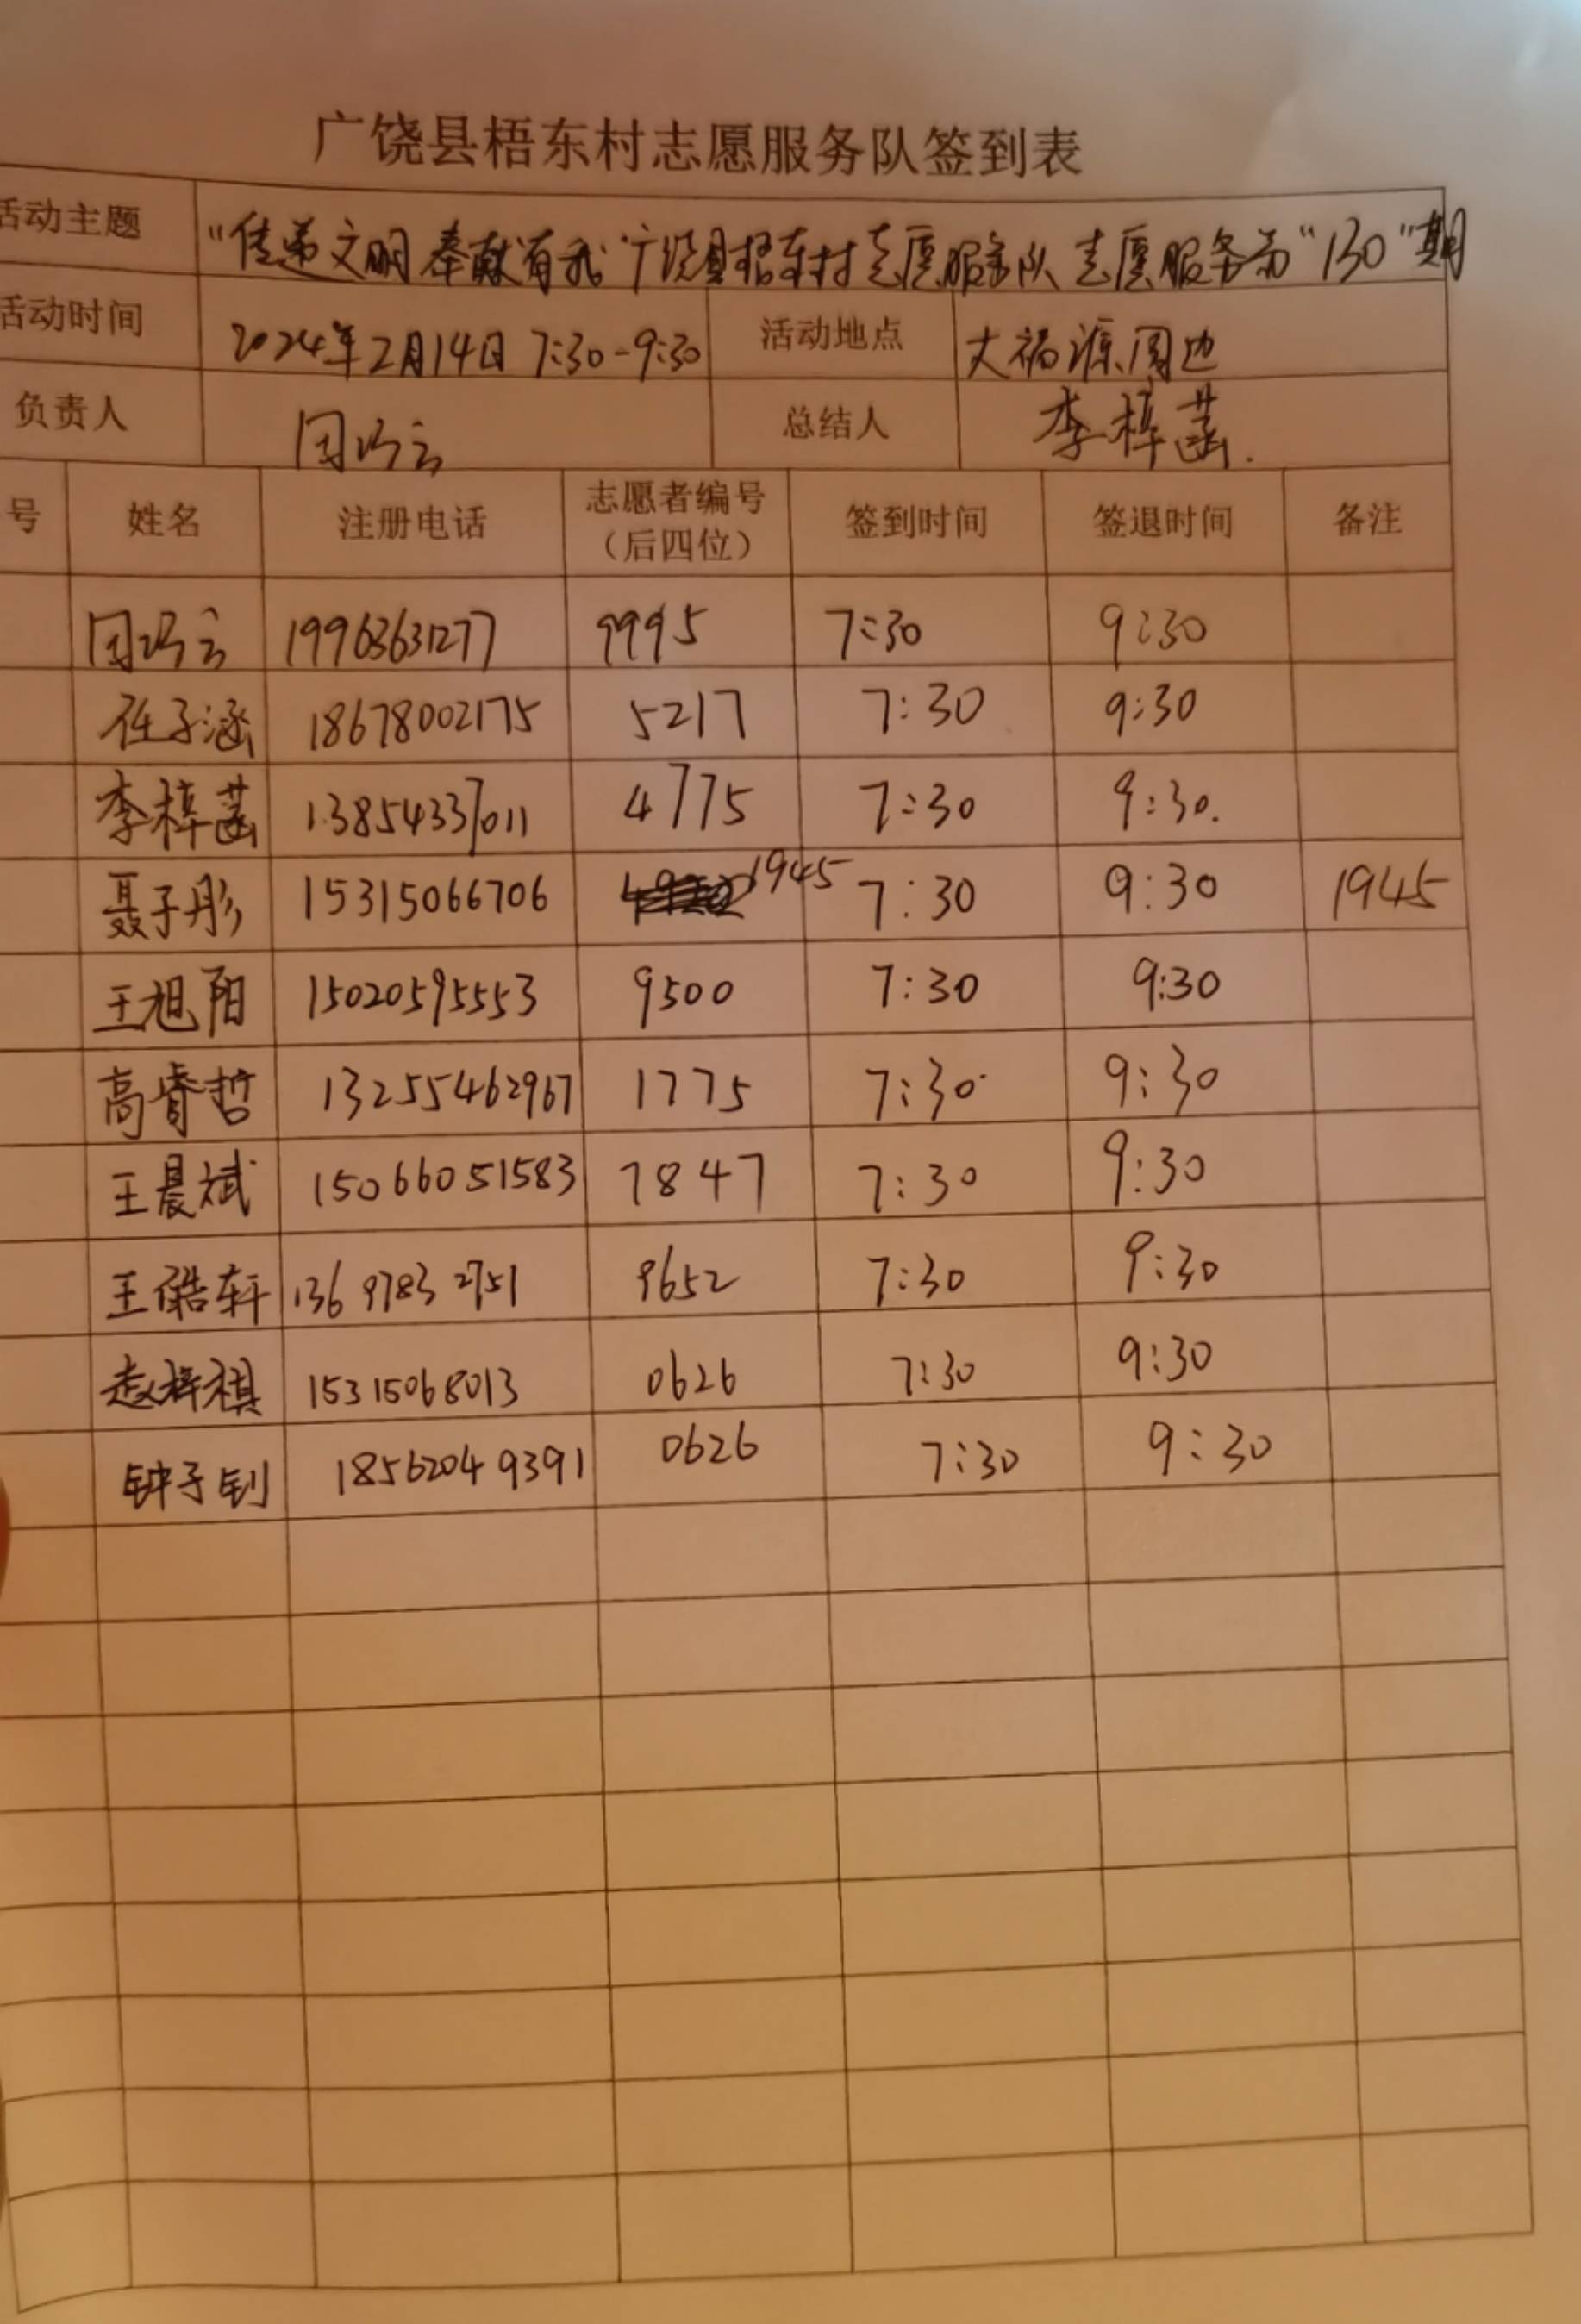 广饶县梧东村志愿服务队签到表
活动主题 "传递文明 奉献有我"广饶县梧东村志愿服务队 志愿服务第"130"期
活动时间 2024年2月14日 7:30-9:30 活动地点 大福源周边
负责人 周巧云 总结人 李梓菡.
号 姓名 注册电话 志愿者编号 签到时间 签退时间 备注
（后四位）
周巧云 19963631277 9995 7:30 9:30
任子涵 18678002175 5217 7:30 9:30
李梓菡 13854337011 4775 7:30 9:30.
聂子彤 15315066706 1945 7:30 9:30 1945
王旭阳 15020595553 9500 7:30 9:30
高睿哲 13255462967 1775 7:30 9:30
王晨斌 15066051583 7847 7:30 9:30
王皓轩 13697832751 9652 7:30 9:30
赵梓祺 15315068013 0626 7:30 9:30
钟子钊 18562049391 0626 7:30 9:30